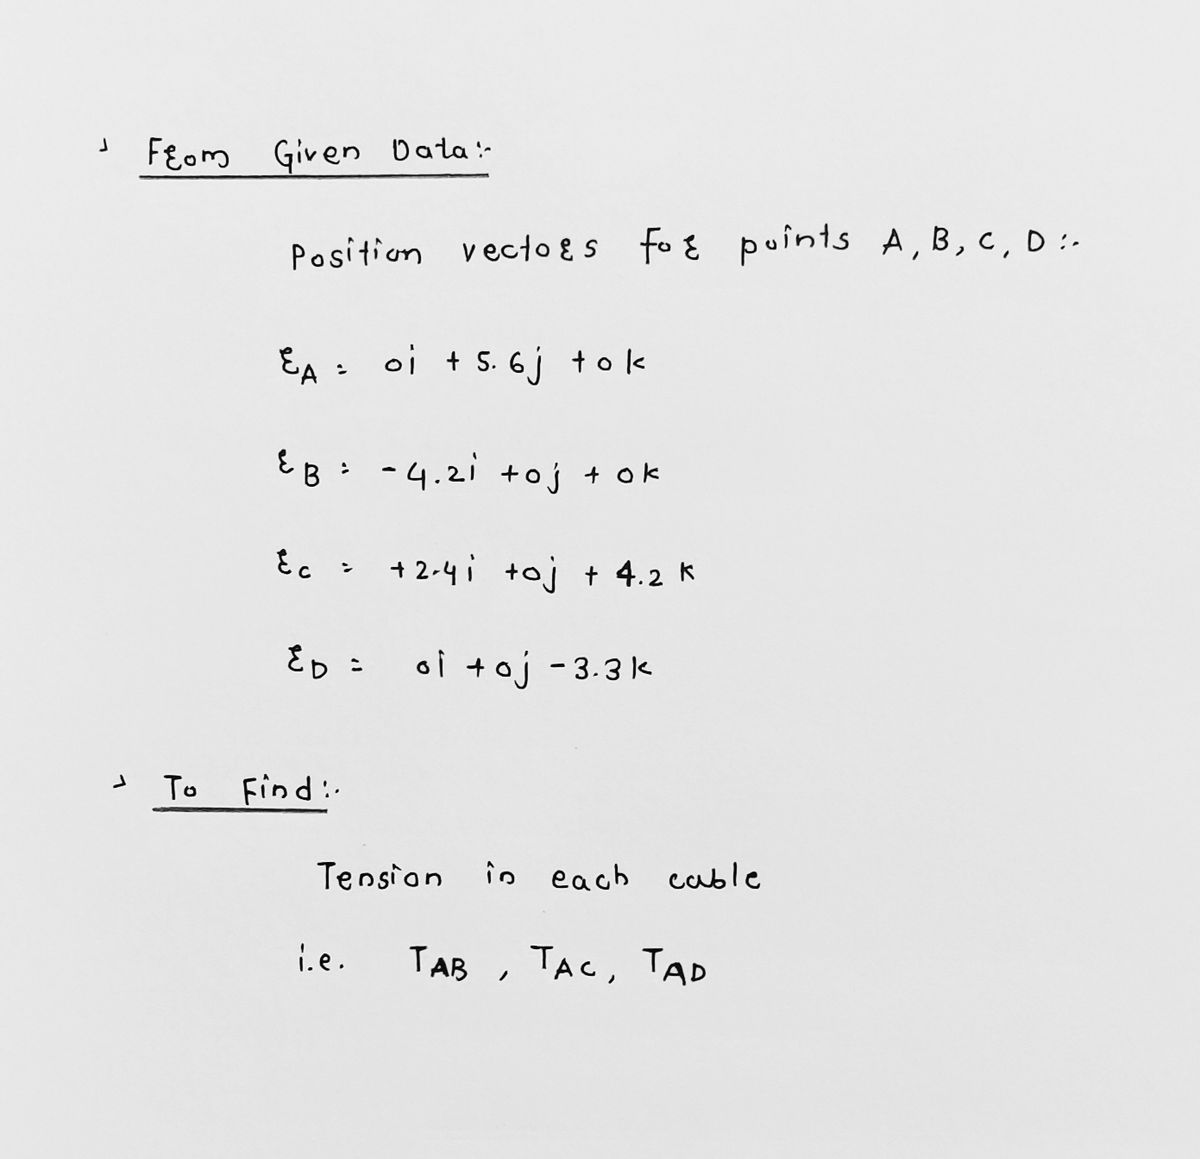 From Given Data:-
Position vectors for points A, B, C, D :-
rA = 0i + 5.6j + 0k
rB = -4.2i + 0j + 0k
rC = +2.4i + 0j + 4.2k
rD = 0i + 0j - 3.3k
To Find:-
Tension in each cable
i.e. TAB , TAC , TAD